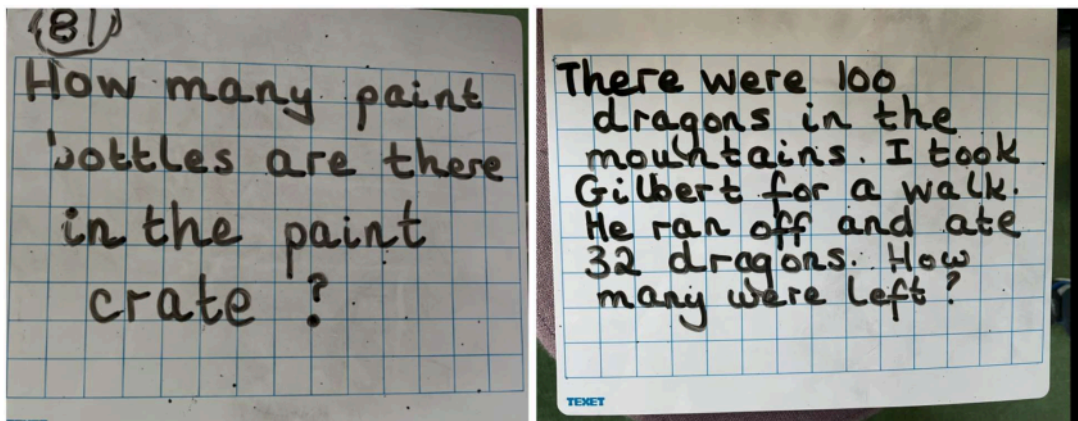 (81)
How many paint
bottles are there
in the paint
crate ?
There were 100
dragons in the
mountains. I took
Gilbert for a walk.
He ran off and ate
32 dragons. How
many were left?
TEXET